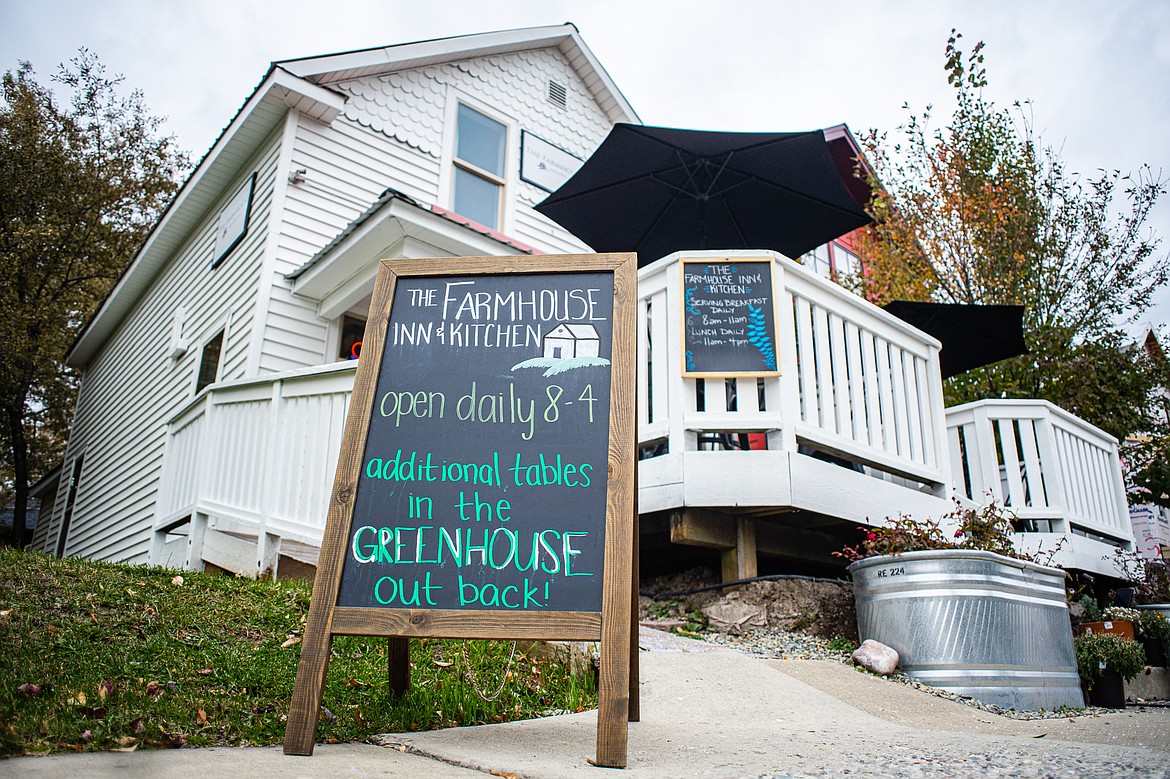 THE FARMHOUSE
INN & KITCHEN
open daily 8-4
additional tables
in the
GREENHOUSE
out back!
THE
FARMHOUSE INN &
KITCHEN
SERVING BREAKFAST
DAILY
8am-11am
LUNCH DAILY
11am-4pm
THE FARMHOUSE
RE 224